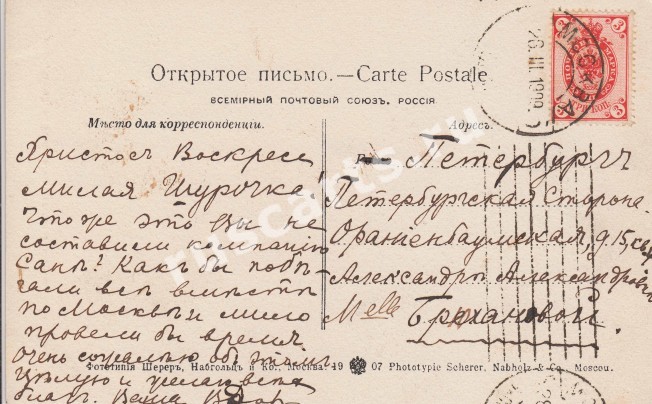 Открытое письмо.—Carte Postale
ВСЕМІРНЫЙ ПОЧТОВЫЙ СОЮЗЪ. РОССІЯ.
Мѣсто для корреспонденціи.
Христосъ Воскресе
милая Шурочка,
что же это Вы не
составили компанію
Санѣ? Какъ бы побѣ-
гали всѣ вмѣстѣ
по Москвѣ и мило
провели бы время
очень сожалѣю объ этомъ
цѣлую и желаю всѣхъ
благ. Ваша
Адресъ.
Петербургъ
Петербургская Сторона.
Ораніенбаумская, д 15, кв
Александрѣ Александровнѣ
Melle Брохановой.
Фототипія Шереръ, Набгольцъ и Ко., Москва. 19 07 Phototypie Scherer, Nabholz & Co., Moscou.
МОСКВА
26.III.1909
3 3
ruscarts.ru